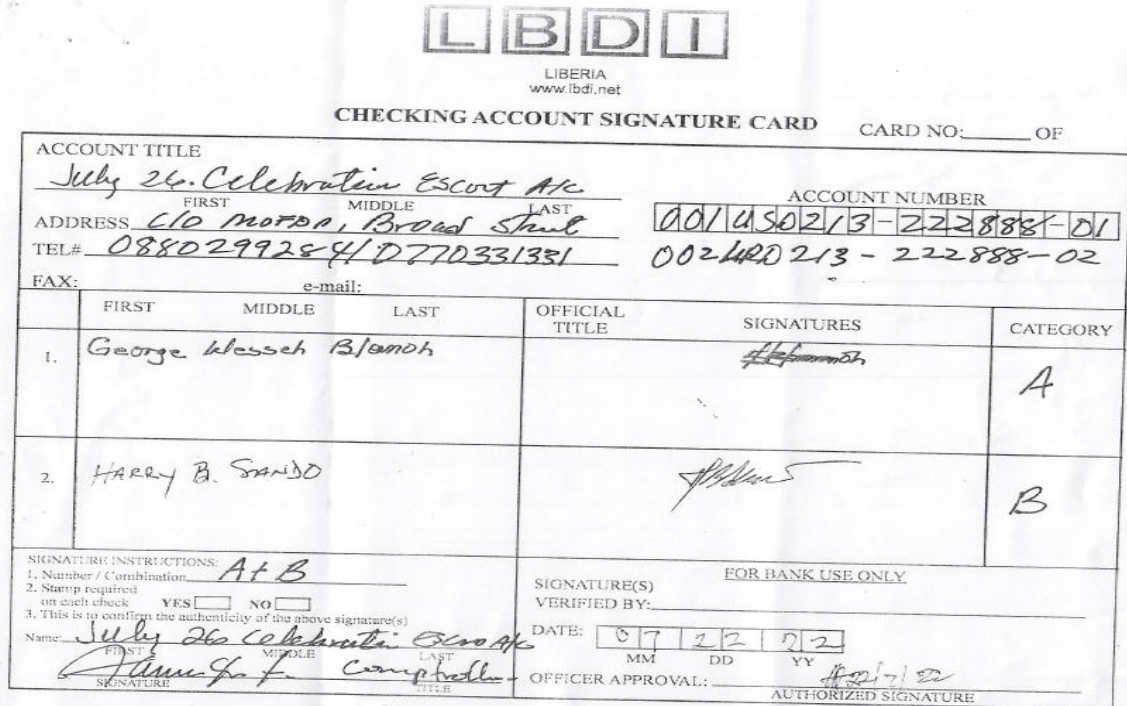 LBDI
LIBERIA
www.lbdi.net
CHECKING ACCOUNT SIGNATURE CARD
CARD NO:______ OF
ACCOUNT TITLE
July 26. Celebration Escort A/c
FIRST MIDDLE LAST
ACCOUNT NUMBER
ADDRESS C/O MOFDP, Broad Street
001USD213-222888-01
TEL# 0880299284/0770331331
002LRD213-222888-02
FAX: e-mail:
FIRST MIDDLE LAST OFFICIAL TITLE SIGNATURES CATEGORY
1. George Wesseh Blamoh A
2. HARRY B. SANDO B
SIGNATURE INSTRUCTIONS:
1. Number / Combination A + B
2. Stamp required
on each check YES NO
3. This is to confirm the authenticity of the above signature(s)
Name: July 26 Celebration Escro A/c
FIRST MIDDLE LAST
Comptroller
SIGNATURE TITLE
FOR BANK USE ONLY
SIGNATURE(S)
VERIFIED BY:
DATE: 07 22 22
MM DD YY
OFFICER APPROVAL: 22/7/22
AUTHORIZED SIGNATURE